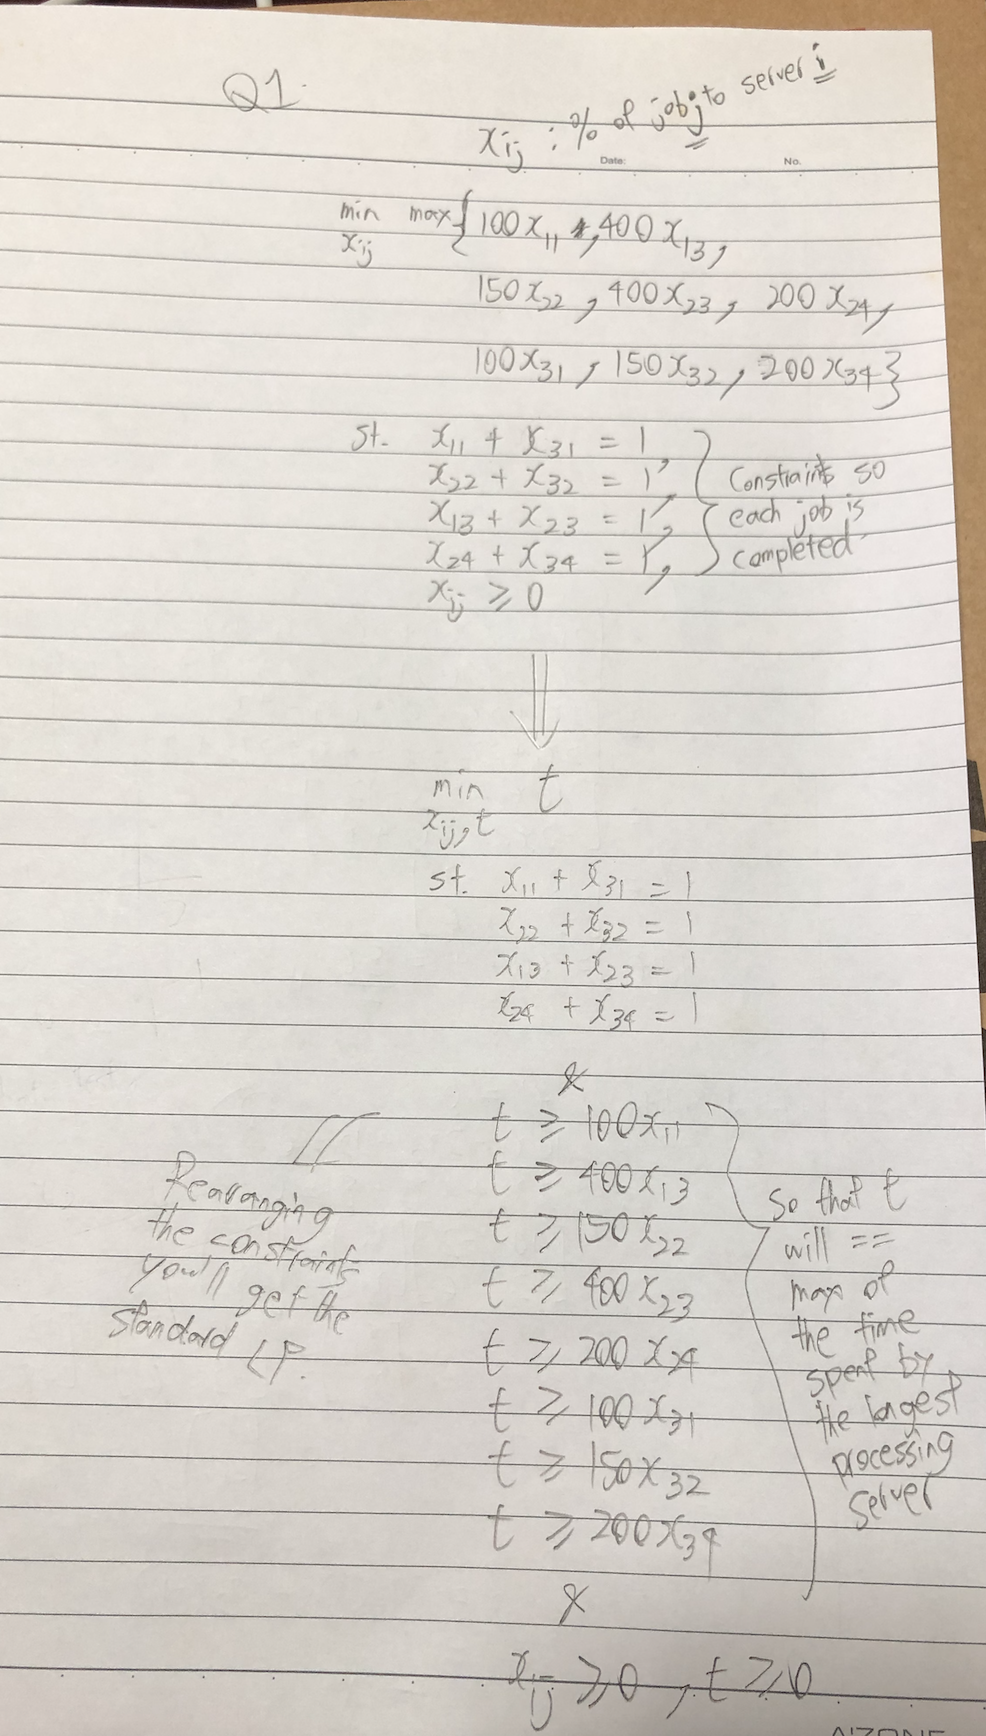 Q1.
xij : % of job j to server i
Date: No.
min max { 100x11 , 400x13 ,
xij
150x22 , 400x23 , 200x24 ,
100x31 , 150x32 , 200x34 }
st. x11 + x31 = 1 ,
x22 + x32 = 1 , Constraints so
x13 + x23 = 1 , each job is
x24 + x34 = 1 , completed
xij ≥ 0
⇓
min t
xij, t
st. x11 + x31 = 1
x22 + x32 = 1
x13 + x23 = 1
x24 + x34 = 1
&
t ≥ 100x11
t ≥ 400x13
t ≥ 150x22
t ≥ 400x23
t ≥ 200x24
t ≥ 100x31
t ≥ 150x32
t ≥ 200x34
So that t
will ==
max of
the time
spent by
the longest
processing
server
Rearranging
the constraints
you'll get the
standard LP.
&
xij ≥ 0 , t ≥ 0